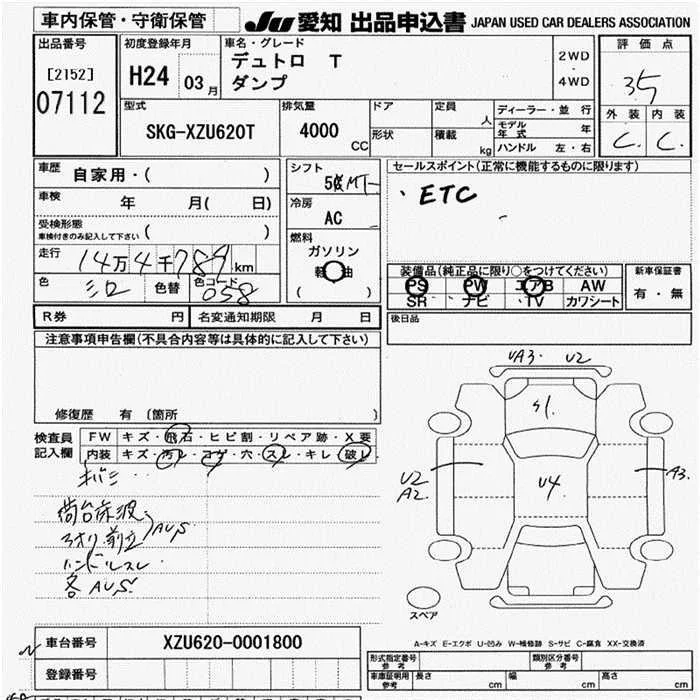 車内保管・守衛保管
JU 愛知 出品申込書 JAPAN USED CAR DEALERS ASSOCIATION
出品番号
[2152]
07112
初度登録年月
H24 03 月
車名・グレード
デュトロ T
ダンプ
2WD
・
4WD
評価点
3.5
外装 内装
C C
型式
SKG-XZU620T
排気量
4000 CC
ドア
形状
定員 人
積載 kg
ディーラー・並行
モデル年式 年
ハンドル 左・右
車歴 自家用・( )
車検 年 月( 日)
受検形態
車検付きのみ記入して下さい ( )
走行 14万4千789km
色 シロ 色替 色コード 058
シフト
5速MT
冷房
AC
燃料
ガソリン
軽油
( )
セールスポイント(正常に機能するものに限ります)
、ETC
装備品(純正品に限り○をつけてください)
PS PW エアB AW
SR ナビ TV カワシート
新車保証書
有・無
R券 円 名変通知期限 月 日
後日品
注意事項申告欄(不具合内容等は具体的に記入して下さい)
修復歴 有 〔箇所 〕
検査員
記入欄
FW キズ・飛石・ヒビ割・リペア跡・X要
内装 キズ・汚レ・コゲ・穴・スレ・キレ・破レ
荷台床波
ハンドルスレ
各AUS
UA3 U2
S1
U4
U2
A2
A3
スペア
A-キズ E-エクボ U-凹み W-補修跡 S-サビ C-腐食 XX-交換済
車台番号 XZU620-0001800
登録番号
形式指定番号
参考
類別区分番号
参考
車庫証明用
参考
長さ cm 幅 cm 高さ cm